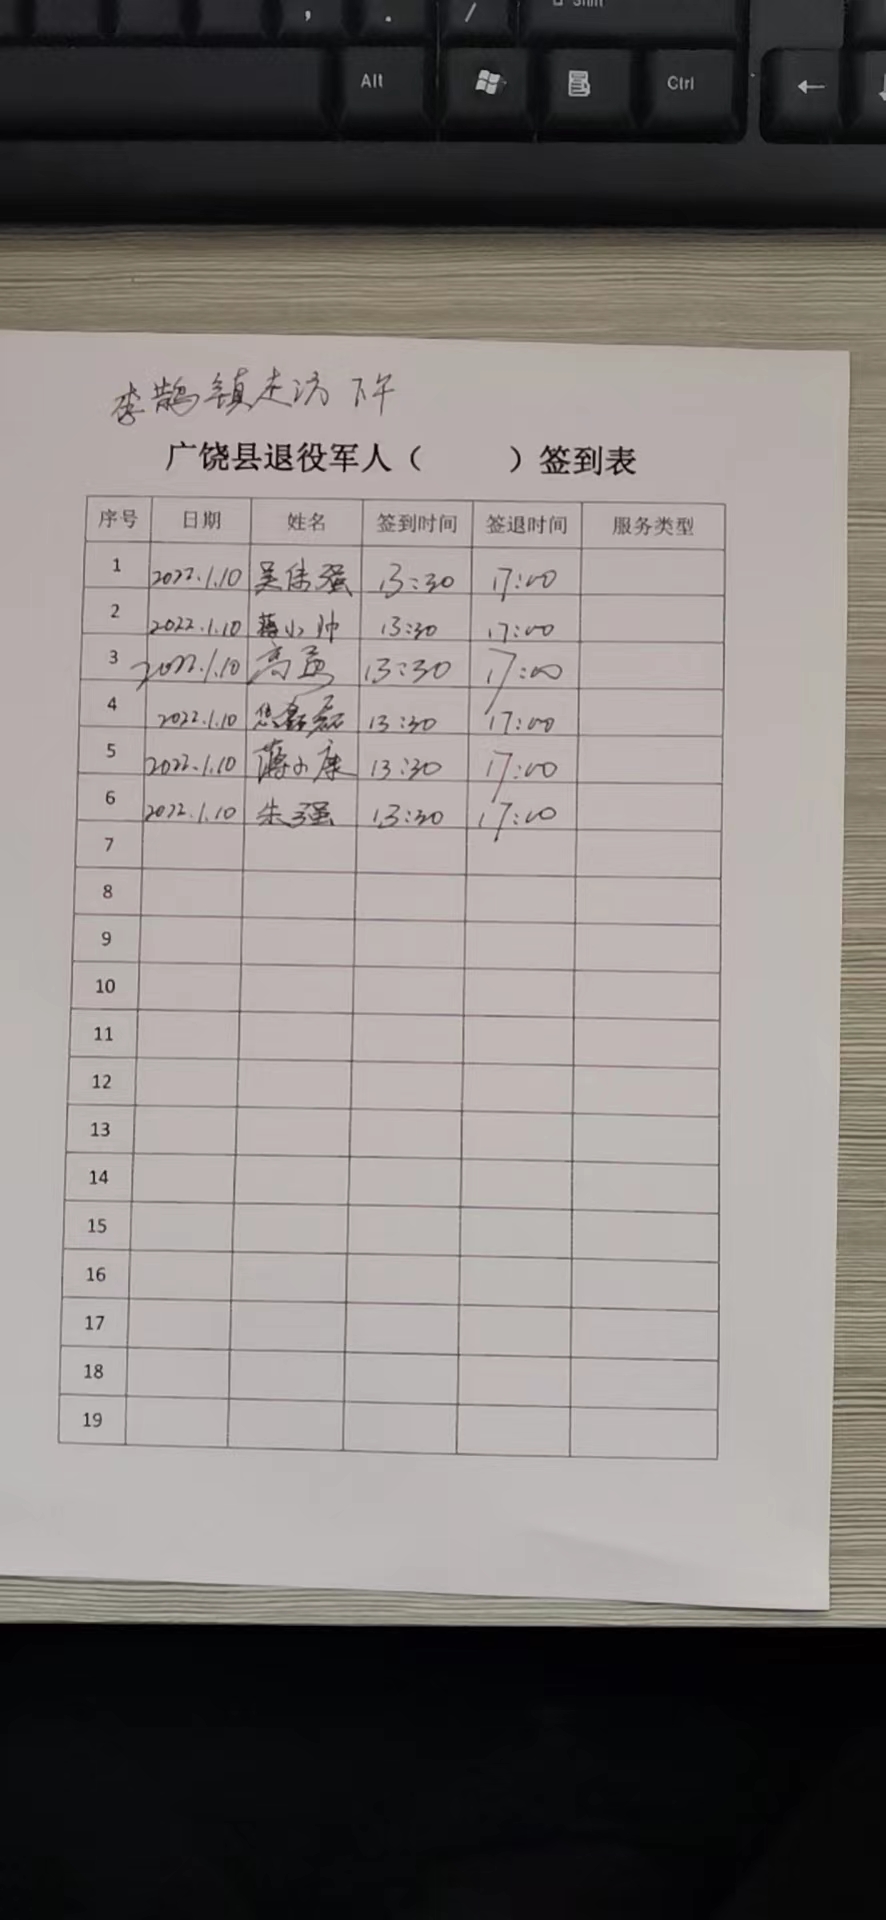 , . / Shift
Alt Ctrl ←
李鹊镇走访 下午
广饶县退役军人（ ）签到表
序号 日期 姓名 签到时间 签退时间 服务类型
1 2022.1.10 吴伟强 13:30 17:00
2 2022.1.10 蒋小帅 13:30 17:00
3 2022.1.10 高 13:30 17:00
4 2022.1.10 磊磊 13:30 17:00
5 2022.1.10 蒋小康 13:30 17:00
6 2022.1.10 朱强 13:30 17:00
7
8
9
10
11
12
13
14
15
16
17
18
19